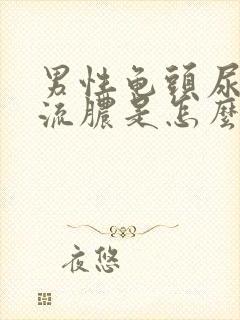 男性龟頭尿
流膿是怎麼
夜悠